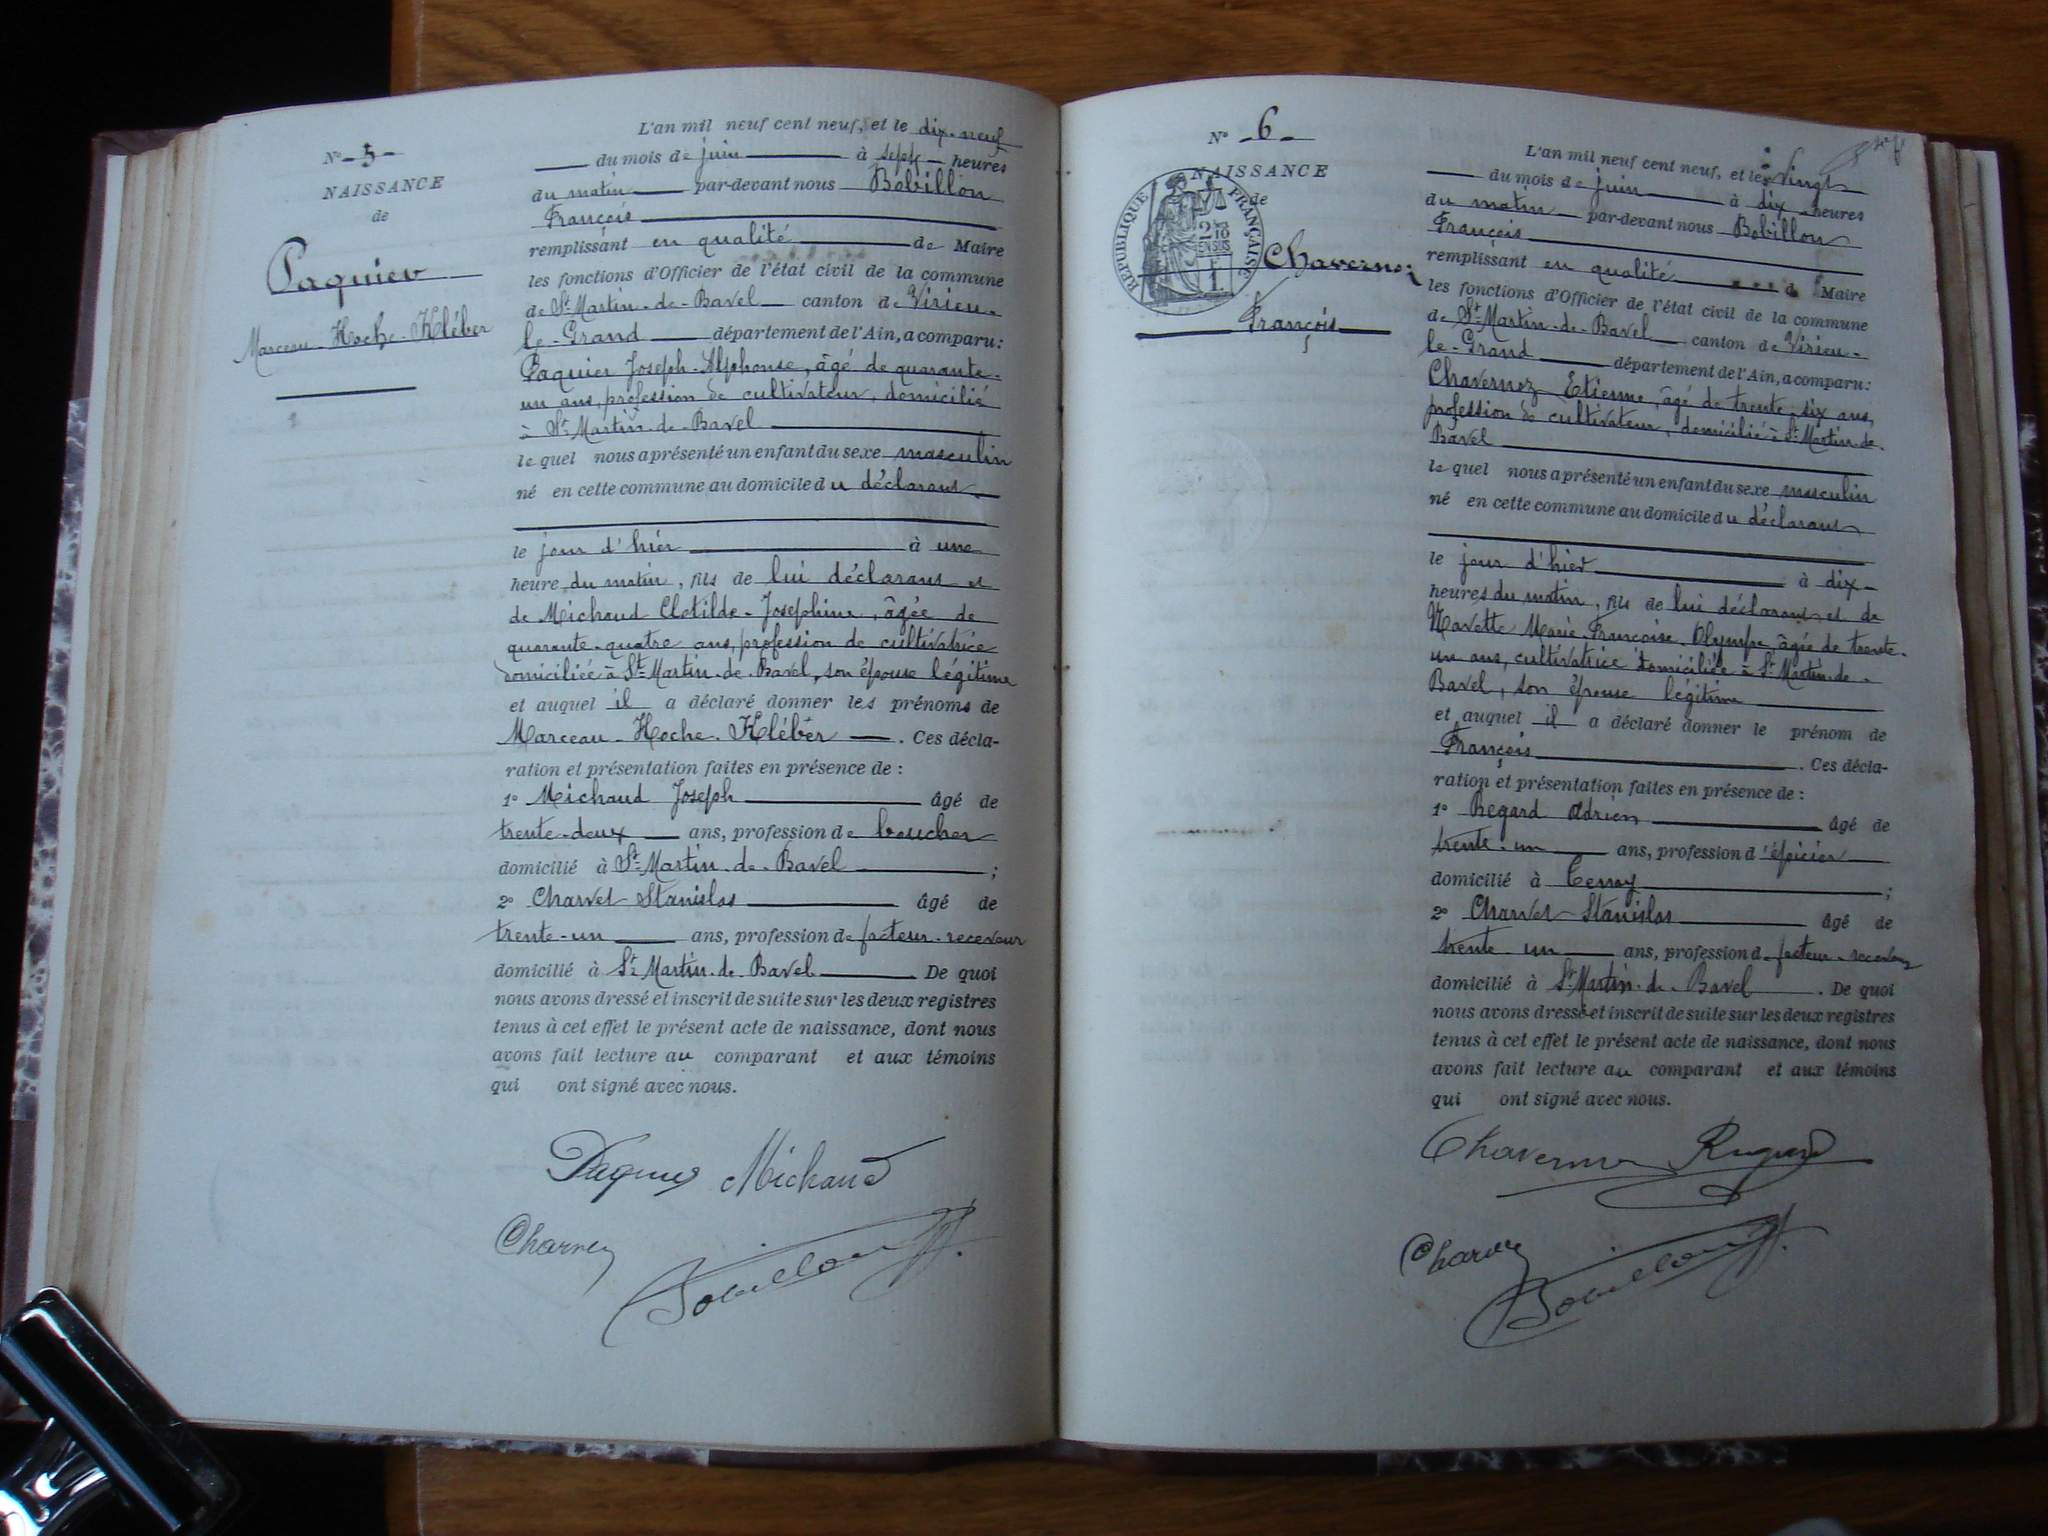 N° 5
NAISSANCE
de
Paquier
Marceau-Hoche-Kléber
L'an mil neuf cent neuf, et le dix-neuf
du mois de juin à sept heures
du matin par-devant nous Bobillon
François
remplissant en qualité de Maire
les fonctions d'Officier de l'état civil de la commune
de St Martin-de-Bavel canton de Virieu-
le-Grand département de l'Ain, a comparu:
Paquier Joseph-Alphonse, âgé de quarante-
un ans, profession de cultivateur, domicilié
à St Martin-de-Bavel
lequel nous a présenté un enfant du sexe masculin
né en cette commune au domicile du déclarant
le jour d'hier à une
heure du matin, fils de lui déclarant et
de Michaud Clotilde-Joséphine, âgée de
quarante-quatre ans, profession de cultivatrice
domiciliée à St Martin-de-Bavel, son épouse légitime
et auquel il a déclaré donner les prénoms de
Marceau-Hoche-Kléber. Ces décla-
ration et présentation faites en présence de :
1° Michaud Joseph âgé de
trente-deux ans, profession de boucher
domicilié à St Martin-de-Bavel ;
2° Charvet Stanislas âgé de
trente-un ans, profession de facteur-receveur
domicilié à St Martin-de-Bavel De quoi
nous avons dressé et inscrit de suite sur les deux registres
tenus à cet effet le présent acte de naissance, dont nous
avons fait lecture au comparant et aux témoins
qui ont signé avec nous.
Paquier Michaud
Charvet
Bobillon
N° 6
NAISSANCE
de
RÉPUBLIQUE FRANÇAISE
2/10 EN SUS
Chavernoz
François
L'an mil neuf cent neuf, et le vingt
du mois de juin à dix heures
du matin par-devant nous Bobillon
François
remplissant en qualité de Maire
les fonctions d'Officier de l'état civil de la commune
de St Martin-de-Bavel canton de Virieu-
le-Grand département de l'Ain, a comparu:
Chavernoz Etienne, âgé de trente-six ans,
profession de cultivateur, domicilié à St Martin-de-
Bavel
lequel nous a présenté un enfant du sexe masculin
né en cette commune au domicile du déclarant
le jour d'hier à dix
heures du matin, fils de lui déclarant et de
Marie-Françoise-Olympe âgée de trente-
un ans, cultivatrice domiciliée à St Martin-de-
Bavel, son épouse légitime
et auquel il a déclaré donner le prénom de
François. Ces décla-
ration et présentation faites en présence de :
1° Regard Adrien âgé de
trente-un ans, profession d'épicier
domicilié à ;
2° Charvet Stanislas âgé de
trente-un ans, profession de facteur-receveur
domicilié à St Martin-de-Bavel. De quoi
nous avons dressé et inscrit de suite sur les deux registres
tenus à cet effet le présent acte de naissance, dont nous
avons fait lecture au comparant et aux témoins
qui ont signé avec nous.
Chavernoz Regard
Charvet
Bobillon